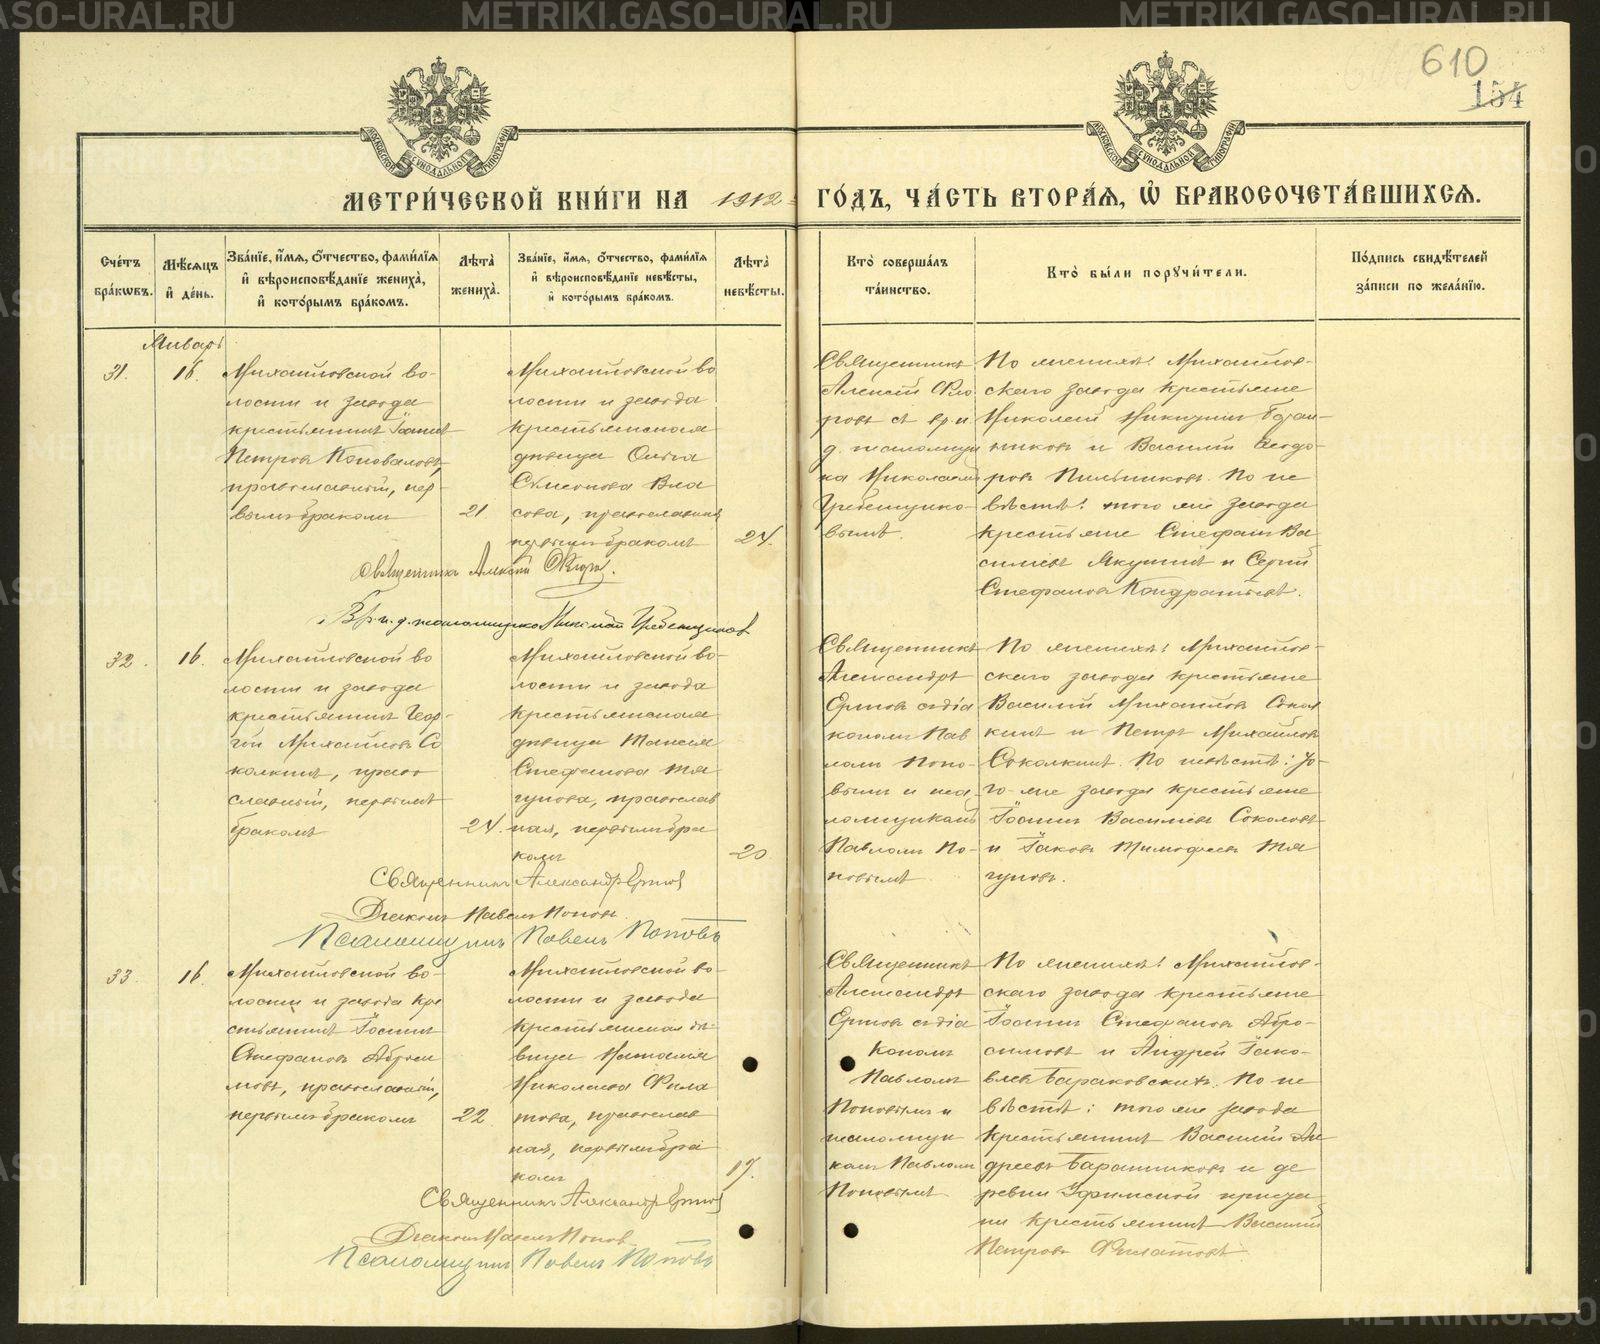 610
154
МЕТРИ́ЧЕСКОЙ КНИ́ГИ НА 1912 ГО́ДЪ, ЧА́СТЬ ВТОРА́Я, Ѡ БРАКОСОЧЕТА́ВШИХСЯ.
Сче́тъ бра́кѡвъ.
Мѣ́сяцъ и҆ де́нь.
Зва́нїе, и҆́мя, ѻ҆́тчество, фами́лїя и҆ вѣроисповѣ́данїе жениха̀, и҆ кото́рымъ бра́комъ.
Лѣ́та жениха̀.
Зва́нїе, и҆́мя, ѻ҆́тчество, фами́лїя и҆ вѣроисповѣ́данїе невѣ́сты, и҆ кото́рымъ бра́комъ.
Лѣ́та невѣ́сты.
Кто̀ соверша́лъ та́инство.
Кто̀ бы́ли порꙋчи́тели.
По́дпись свидѣ́телей за́писи по жела́нїю.
Январь
31.
16.
Михайловской во-
лости и завода
крестьянинъ Іоаннъ
Петровъ Коноваловъ,
православный, пер-
вымъ бракомъ
21
Михайловской во
лости и завода
крестьянская
дѣвица Ольга
Симеонова Вла
сова, православная
первымъ бракомъ
24.
Священникъ
Алексій Фло
ровъ съ вр. и.
д. псаломщи
ка Николаемъ
Гребенщико-
вымъ.
По женихѣ: Михайлов-
скаго завода крестьяне
Николай Никитинъ
и Василій Ѳеодо-
ровъ Пильниковъ. По не
вѣстѣ: того же завода
крестьяне Стефанъ Ва
сильевъ Якушинъ и Сергій
Стефановъ Кондратьевъ.
Священникъ Алексій Флоровъ.
Вр. и. д. псаломщика Николай Гребенщиковъ
32.
16.
Михайловской во
лости и завода
крестьянинъ Геор-
гій Михайловъ Со
колкинъ, право
славный, первымъ
бракомъ
24.
Михайловской во-
лости и завода
крестьянская
дѣвица Таисія
Стефанова Тя
гунова, православ
ная, первымъ бра
комъ
20
Священникъ
Александръ
Ерловъ съ діа
кономъ Пав
ломъ Попо-
вымъ и пса
ломщикомъ
Павломъ По-
повымъ.
По женихѣ: Михайлов-
скаго завода крестьяне
Василій Михайловъ Сокол
кинъ и Петръ Михайловъ
Соколкинъ. По невѣстѣ: то-
го же завода крестьяне
Іоаннъ Василіевъ Соколовъ
и Іаковъ Тимофеевъ Тя
гуновъ.
Священникъ Александръ Ерловъ
Діаконъ Павелъ Поповъ.
Псаломщикъ Павелъ Поповъ
33.
16.
Михайловской во-
лости и завода кре
стьянинъ Іоаннъ
Стефановъ Аброси
мовъ, православный,
первымъ бракомъ
22.
Михайловской во-
лости и завода
крестьянская дѣ-
вица Наталія
Николаева Фила
това, православ
ная, первымъ бра
комъ
17.
Священникъ
Александръ
Ерловъ съ діа
кономъ
Павломъ
Поповымъ и
псаломщи
комъ Павломъ
Поповымъ
По женихѣ: Михайлов-
скаго завода крестьяне
Іоаннъ Стефановъ Абро-
симовъ и Андрей Іако-
влевъ Бараковскихъ. По не
вѣстѣ: того же завода
крестьянинъ Василій Ан
дреевъ Баранниковъ и де
ревни Уфимской
крестьянинъ Василій
Петровъ Филатовъ.
Священникъ Александръ Ерловъ
Діаконъ Павелъ Поповъ
Псаломщикъ Павелъ Поповъ
METRIKI.GASO-URAL.RU